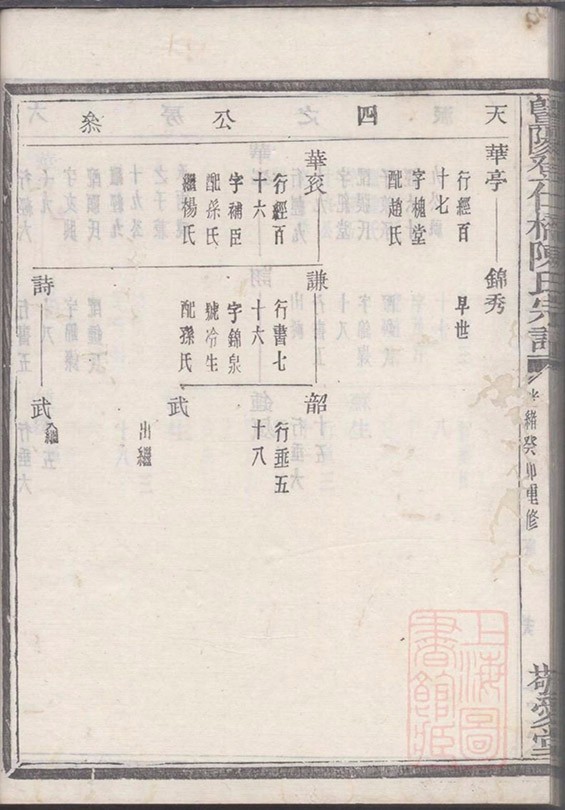 暨陽登仕橋陳氏宗譜
光緒癸卯重修
敬愛堂
天四公叅
華亭
行經百
十七
字槐堂
配趙氏
錦秀
早世
華袞
行經百
十六
字補臣
配孫氏
繼楊氏
謙
行書七
十六
字錦泉
號冷生
配孫氏
韶
行垂五
十八
武
出繼
詩
武
繼
上海圖
書館藏